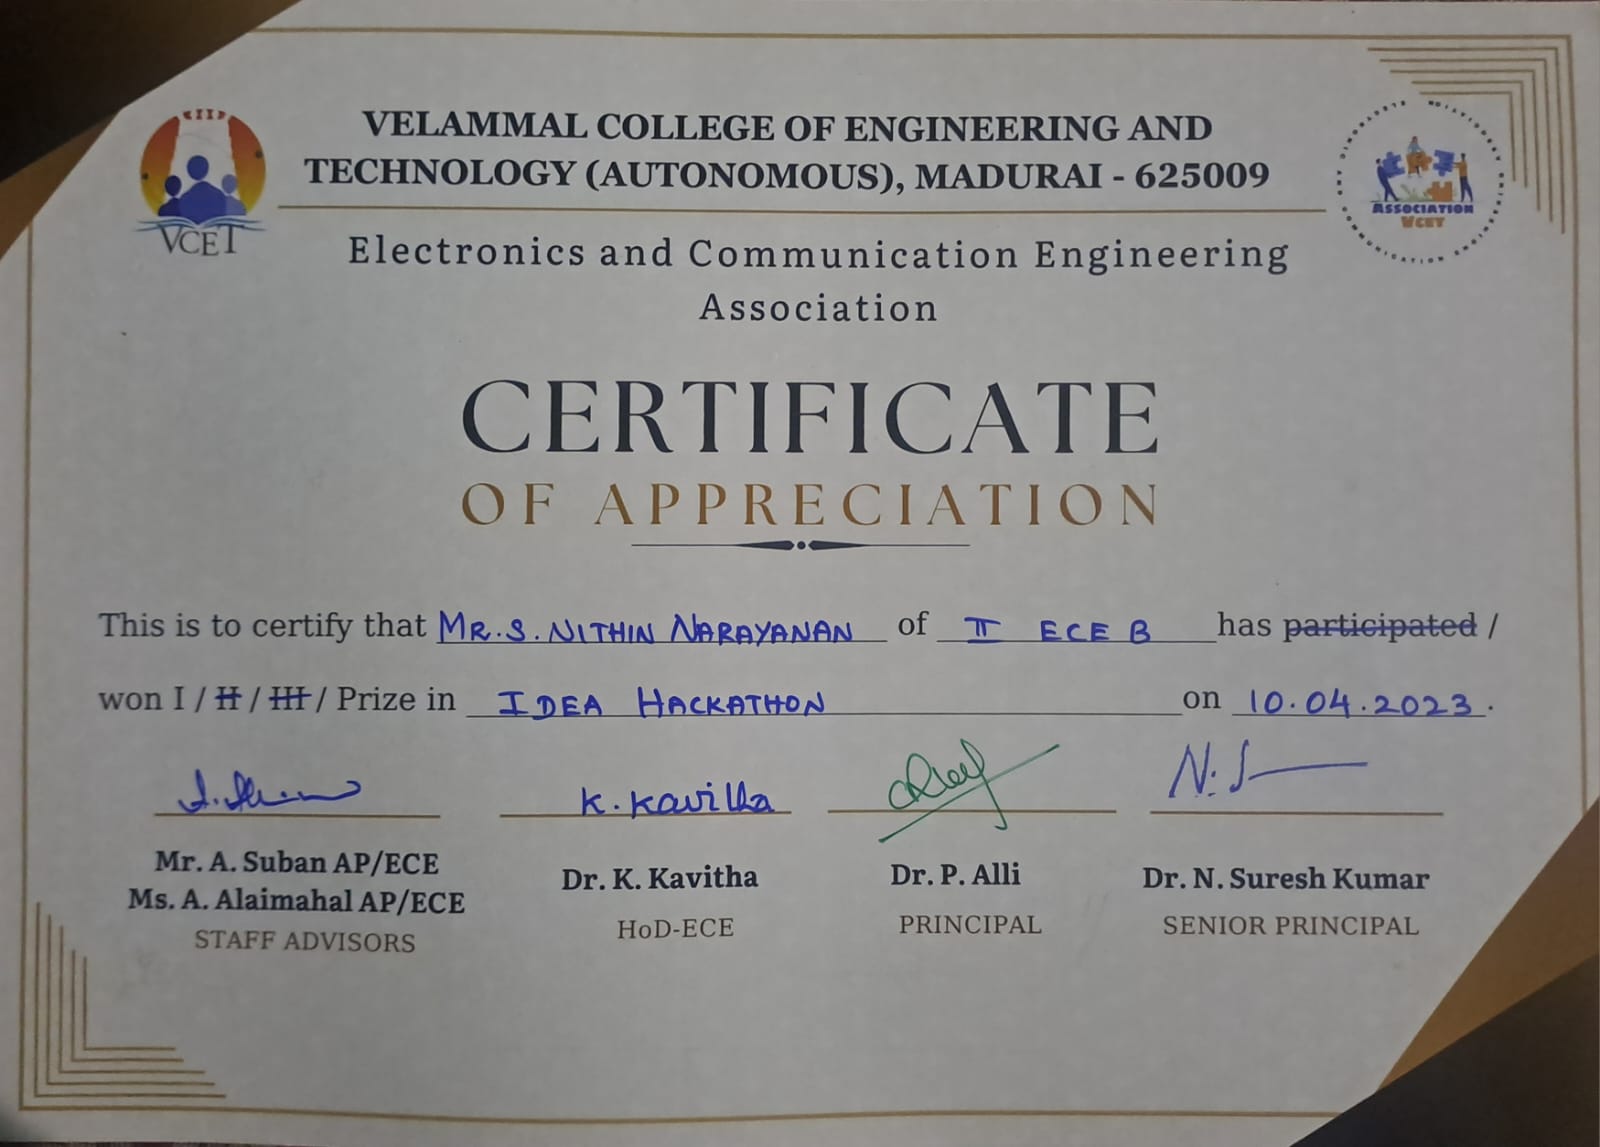 VELAMMAL COLLEGE OF ENGINEERING AND
TECHNOLOGY (AUTONOMOUS), MADURAI - 625009
VCET
ASSOCIATION
VCET
Electronics and Communication Engineering
Association
CERTIFICATE
OF APPRECIATION
This is to certify that MR. S. NITHIN NARAYANAN of II ECE B has participated /
won I / II / III / Prize in IDEA HACKATHON on 10.04.2023.
K. Kavitha
N. S
Mr. A. Suban AP/ECE
Ms. A. Alaimahal AP/ECE
STAFF ADVISORS
Dr. K. Kavitha
HoD-ECE
Dr. P. Alli
PRINCIPAL
Dr. N. Suresh Kumar
SENIOR PRINCIPAL